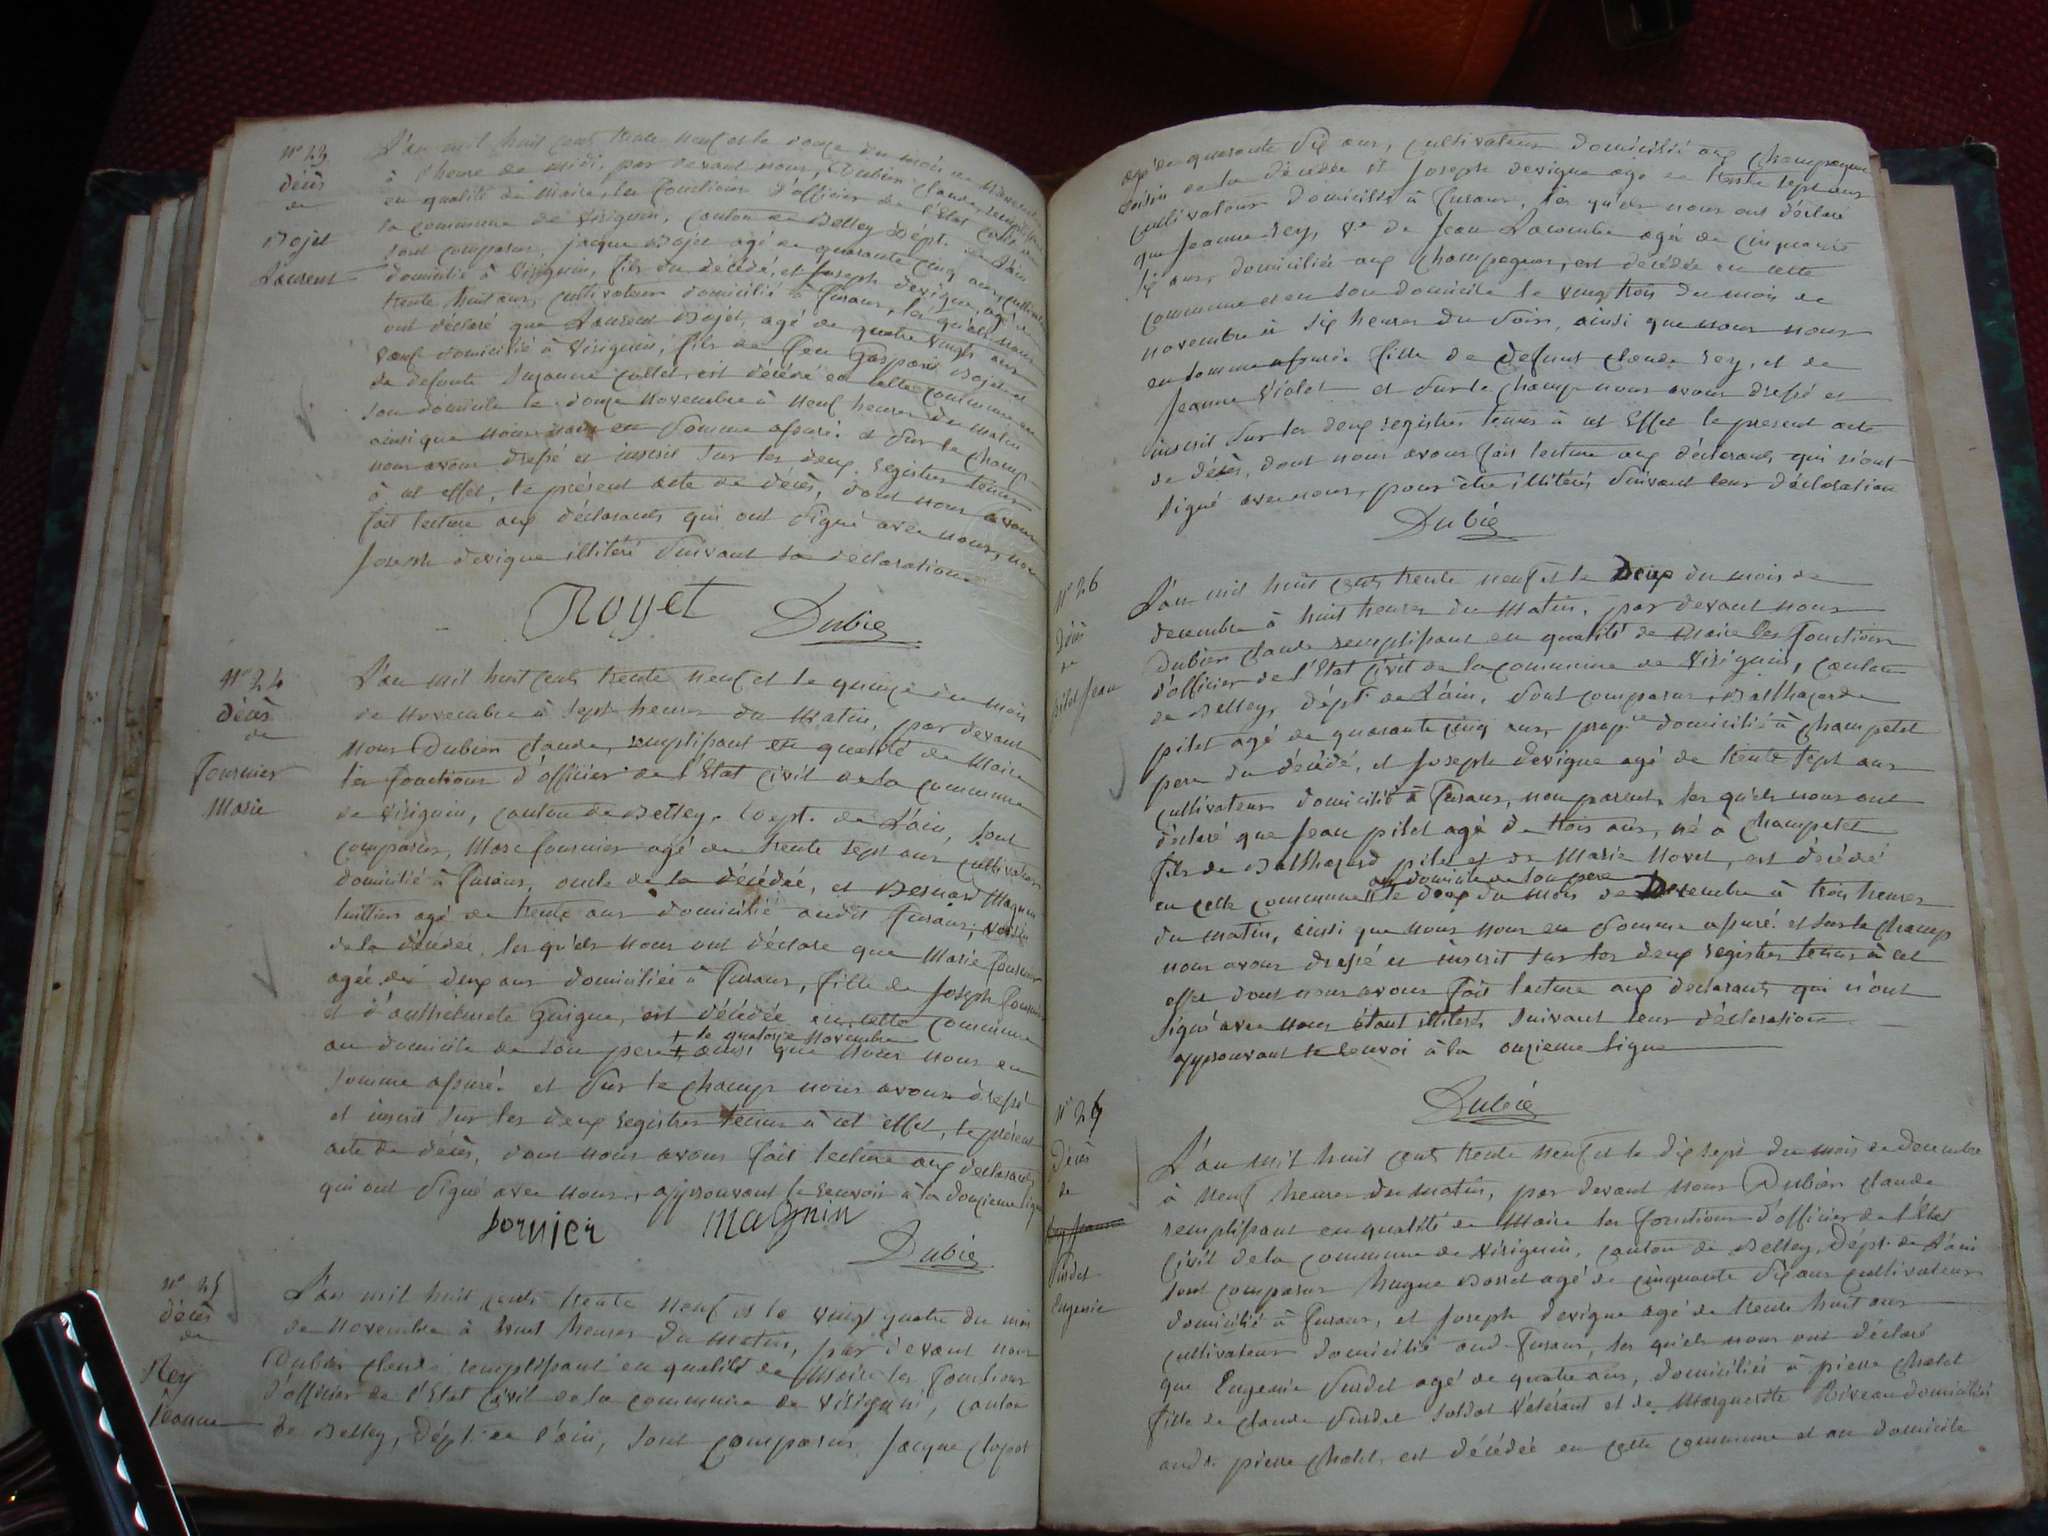 N° 23
décès
de
Rojet
Laurent
L'an mil huit cent trente neuf et le douze du mois de Novembre
à l'heure de midi, par devant nous, Dubien Claude, remplissant
en qualité de Maire, les fonctions d'officier de l'Etat civil de
la commune de Virignin, canton de Belley Dépt. de l'ain
sont comparus, jacque Rojet agé de quarante cinq ans, cultivateur
domicilié à Virignin, fils du décédé, et Joseph devigne, agé de
trente huit ans, cultivateur domicilié à fusans, les quels nous
ont déclaré que Laurent Rojet, agé de quatre vingts ans
veuf domicilié à Virignin, fils de feu Gaspard Rojet et
de defunte Suzanne collet, est décédé en cette commune en
son domicile le douze Novembre à neuf heures du matin
ainsi que nous nous en somme assuré. et sur le champ
nous avons dressé et inscrit sur les deux registres tenus
à cet effet, le présent acte de décès, dont nous avons
fait lecture aux déclarants qui ont signé avec nous, non
Joseph devigne illitéré suivant sa declaration
Royet Dubien
N° 24
décès
de
fournier
Marie
L'an mil huit cent trente neuf et le quinze du mois
de Novembre à sept heures du Matin, par devant
nous Dubien Claude, remplissant en qualité de Maire
les fonctions d'officier de l'Etat civil de la commune
de Virignin, canton de Belley, Dept. de L'ain, sont
comparus, Marc fournier agé de trente sept ans cultivateur
domicilié à fusans, oncle de la décédée, et Bernard Magnin
huissier agé de trente ans domicilié audit fusans, voisin
de la décédée, les quels nous ont déclaré que Marie fournier
agée de deux ans domiciliée à fusans, fille de Joseph fournier
et d'anthelmete Guigue, est décédée en cette commune
au domicile de son pere + le quatorze Novembre + ainsi que nous nous en
somme assuré. et sur le champ nous avons dressé
et inscrit sur les deux registres tenus à cet effet, le présent
acte de décès, dont nous avons fait lecture aux declarants
qui ont signé avec nous, approuvant le renvoir à la douzieme ligne
fornier magnin
Dubien
N° 25
décès
de
Rey
Jeanne
L'an mil huit cent trente neuf et le vingt quatre du mois
de Novembre à huit heures du matin, par devant nous
Dubien Claude remplissant en qualité de Maire les fonctions
d'officier de l'Etat civil de la commune de Virignin, canton
de Belley, Dépt. de l'ain, sont comparus Jacque Clopot
agé de quarante six ans, cultivateur domicilié aux champagnes
voisin de la décédée et Joseph devigne agé de trente sept ans
cultivateur domicilié à fusans, les quels nous ont déclaré
que Jeanne Rey, Ve de Jean Lacombe agée de cinquante
six ans, domiciliée aux champagnes, est décédée en cette
commune et en son domicile le vingt trois du mois de
novembre à six heures du soir, ainsi que nous nous
en somme assurés fille de defunt claude Rey, et de
Jeanne Violet et sur le champ nous avons dressé et
inscrit sur les deux registres tenus à cet Effet le present acte
de décès, dont nous avons fait lecture aux déclarants qui n'ont
signé avec nous, pour être illitérés suivant leur déclaration
Dubien
N° 26
Décès
de
pilet Jean
L'an mil huit cent trente neuf et le Deux du mois de
decembre à huit heures du Matin, par devant nous
Dubien claude remplissant en qualité de Maire les fonctions
d'officier de l'Etat civil de la commune de Virignin, canton
de Belley, dépt de L'ain, sont comparus, Balthazarde
pilet agé de quarante cinq ans, propre domicilié à champetel
pere du décédé, et Joseph devigne agé de trente sept ans
cultivateur domicilié à fusans, non parents, les quels nous ont
déclaré que Jean pilet agé de trois ans, né à champetel
fils de Balthazard pilet et de Marie Novel, est décédé
au domicile de son pere
en cette commune le deux du mois de Decembre à trois heures
du matin, ainsi que nous nous en somme assuré. et sur le champ
nous avons dressé et inscrit sur les deux registres tenus à cet
effet dont nous avons fait lecture aux déclarants qui n'ont
signé avec nous étant illiterés suivant leur déclaration
approuvant le renvoi à la onzieme ligne
Dubien
N° 27
Décès
de
Surdet
Eugenie
L'an mil huit cent trente neuf et le dix sept du mois de Decembre
à neuf heures du matin, par devant nous Dubien claude
remplissant en qualité de Maire les fonctions d'officier de l'État
civil de la commune de Virignin, canton de Belley, Dépt. de L'ain
sont comparus hugue Borret agé de cinquante six ans cultivateur
domicilié à fusans, et Joseph devigne agé de trente huit ans
cultivateur domicilié aud fusans, les quels nous ont déclaré
que Eugenie Surdet agé de quatre ans, domiciliée à pierre chatel
fille de claude Surdet soldat vétérant et de Marguerite Riveau domiciliés
aud. pierre chatel, est décédée en cette commune et au domicile